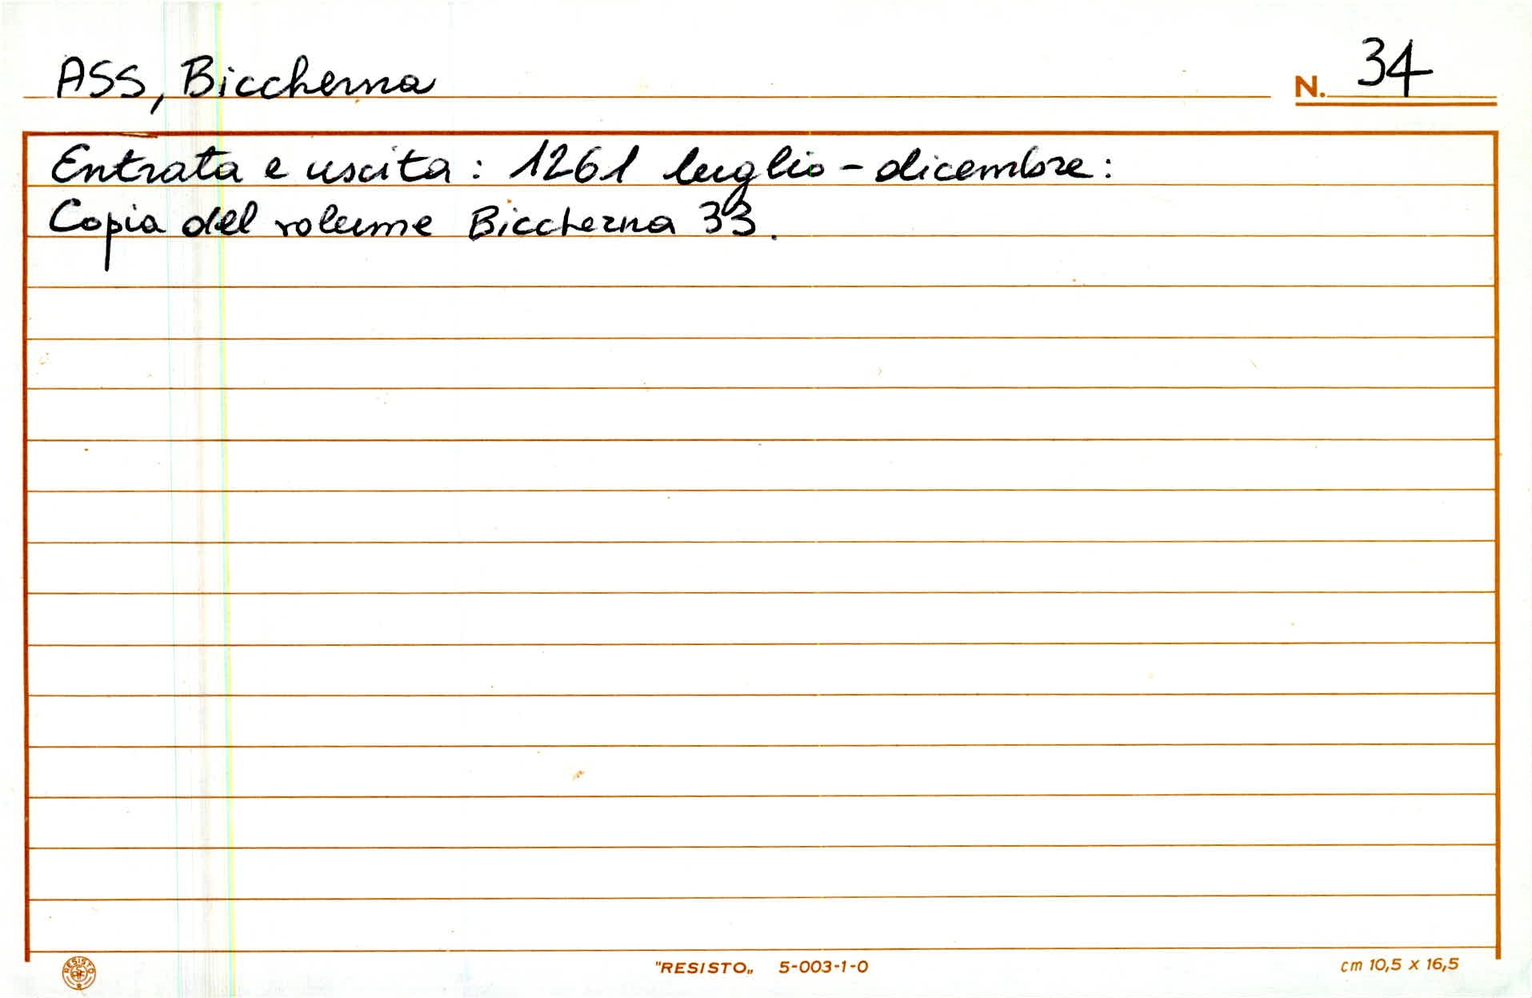 ASS, Biccherna
N. 34
Entrata e uscita: 1261 luglio - dicembre:
Copia del volume Biccherna 33.
RESISTO
"RESISTO„ 5-003-1-0
cm 10,5 x 16,5